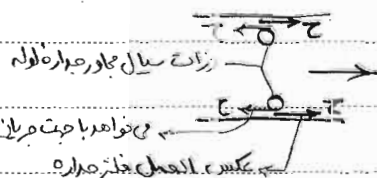 ح ح
ذرات سیال مجاور جداره لوله
ح ح
می‌خواهد با جهت جریان
عکس العمل فلتر جداره